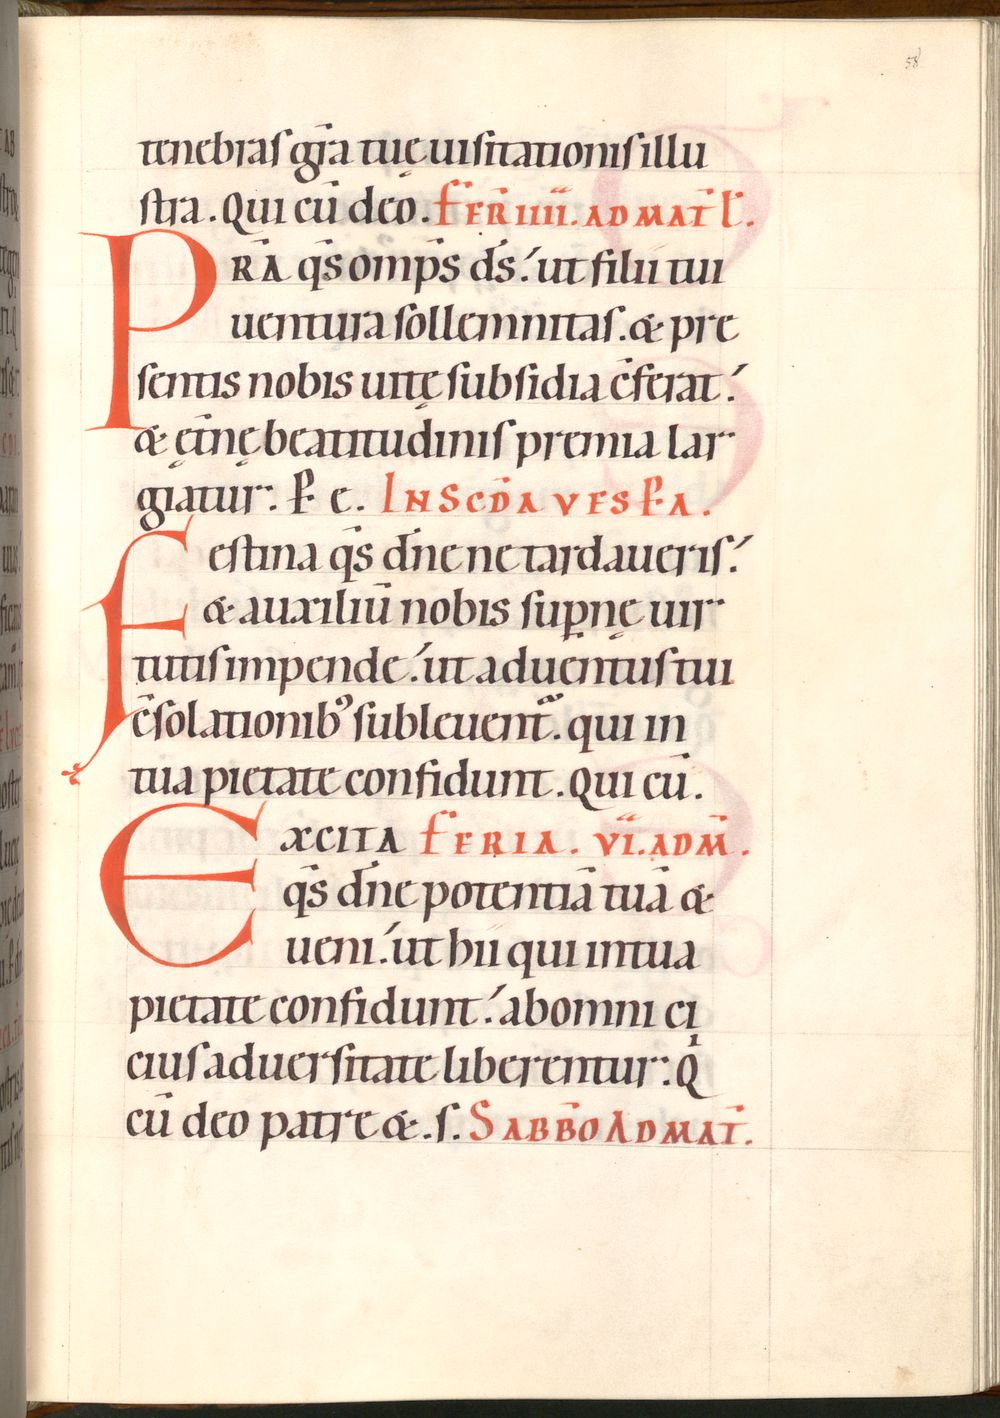 58
tenebras gr̄a tuę uisitationis illu
stra. Qui cū deo. FER̄ IIII. AD MAT̄ L̄.
PRĀ q̄s omp̄s d̄s: ut filii tui
uentura sollemnitas. & pre
sentis nobis uitę subsidia c̄ferat:
& ęt̄nę beatitudinis premia lar
giatur. P̄ e. IN SCD̄A VESP̄A.
Festina q̄s dn̄e ne tardaueris:
& auxiliū nobis sup̱nę uir
tutis impende: ut aduentus tui
c̄solationib⁹ subleuent᷑. qui in
tua pietate confidunt. Qui cū.
EXCITA FERIA. VI. AD M̄.
q̄s dn̄e potentiā tuā &
ueni: ut hii qui in tua
pietate confidunt: ab omni ci
cius aduersitate liberentur. Q̄
cū deo patre &. s. SABB̄O AD MAT̄.